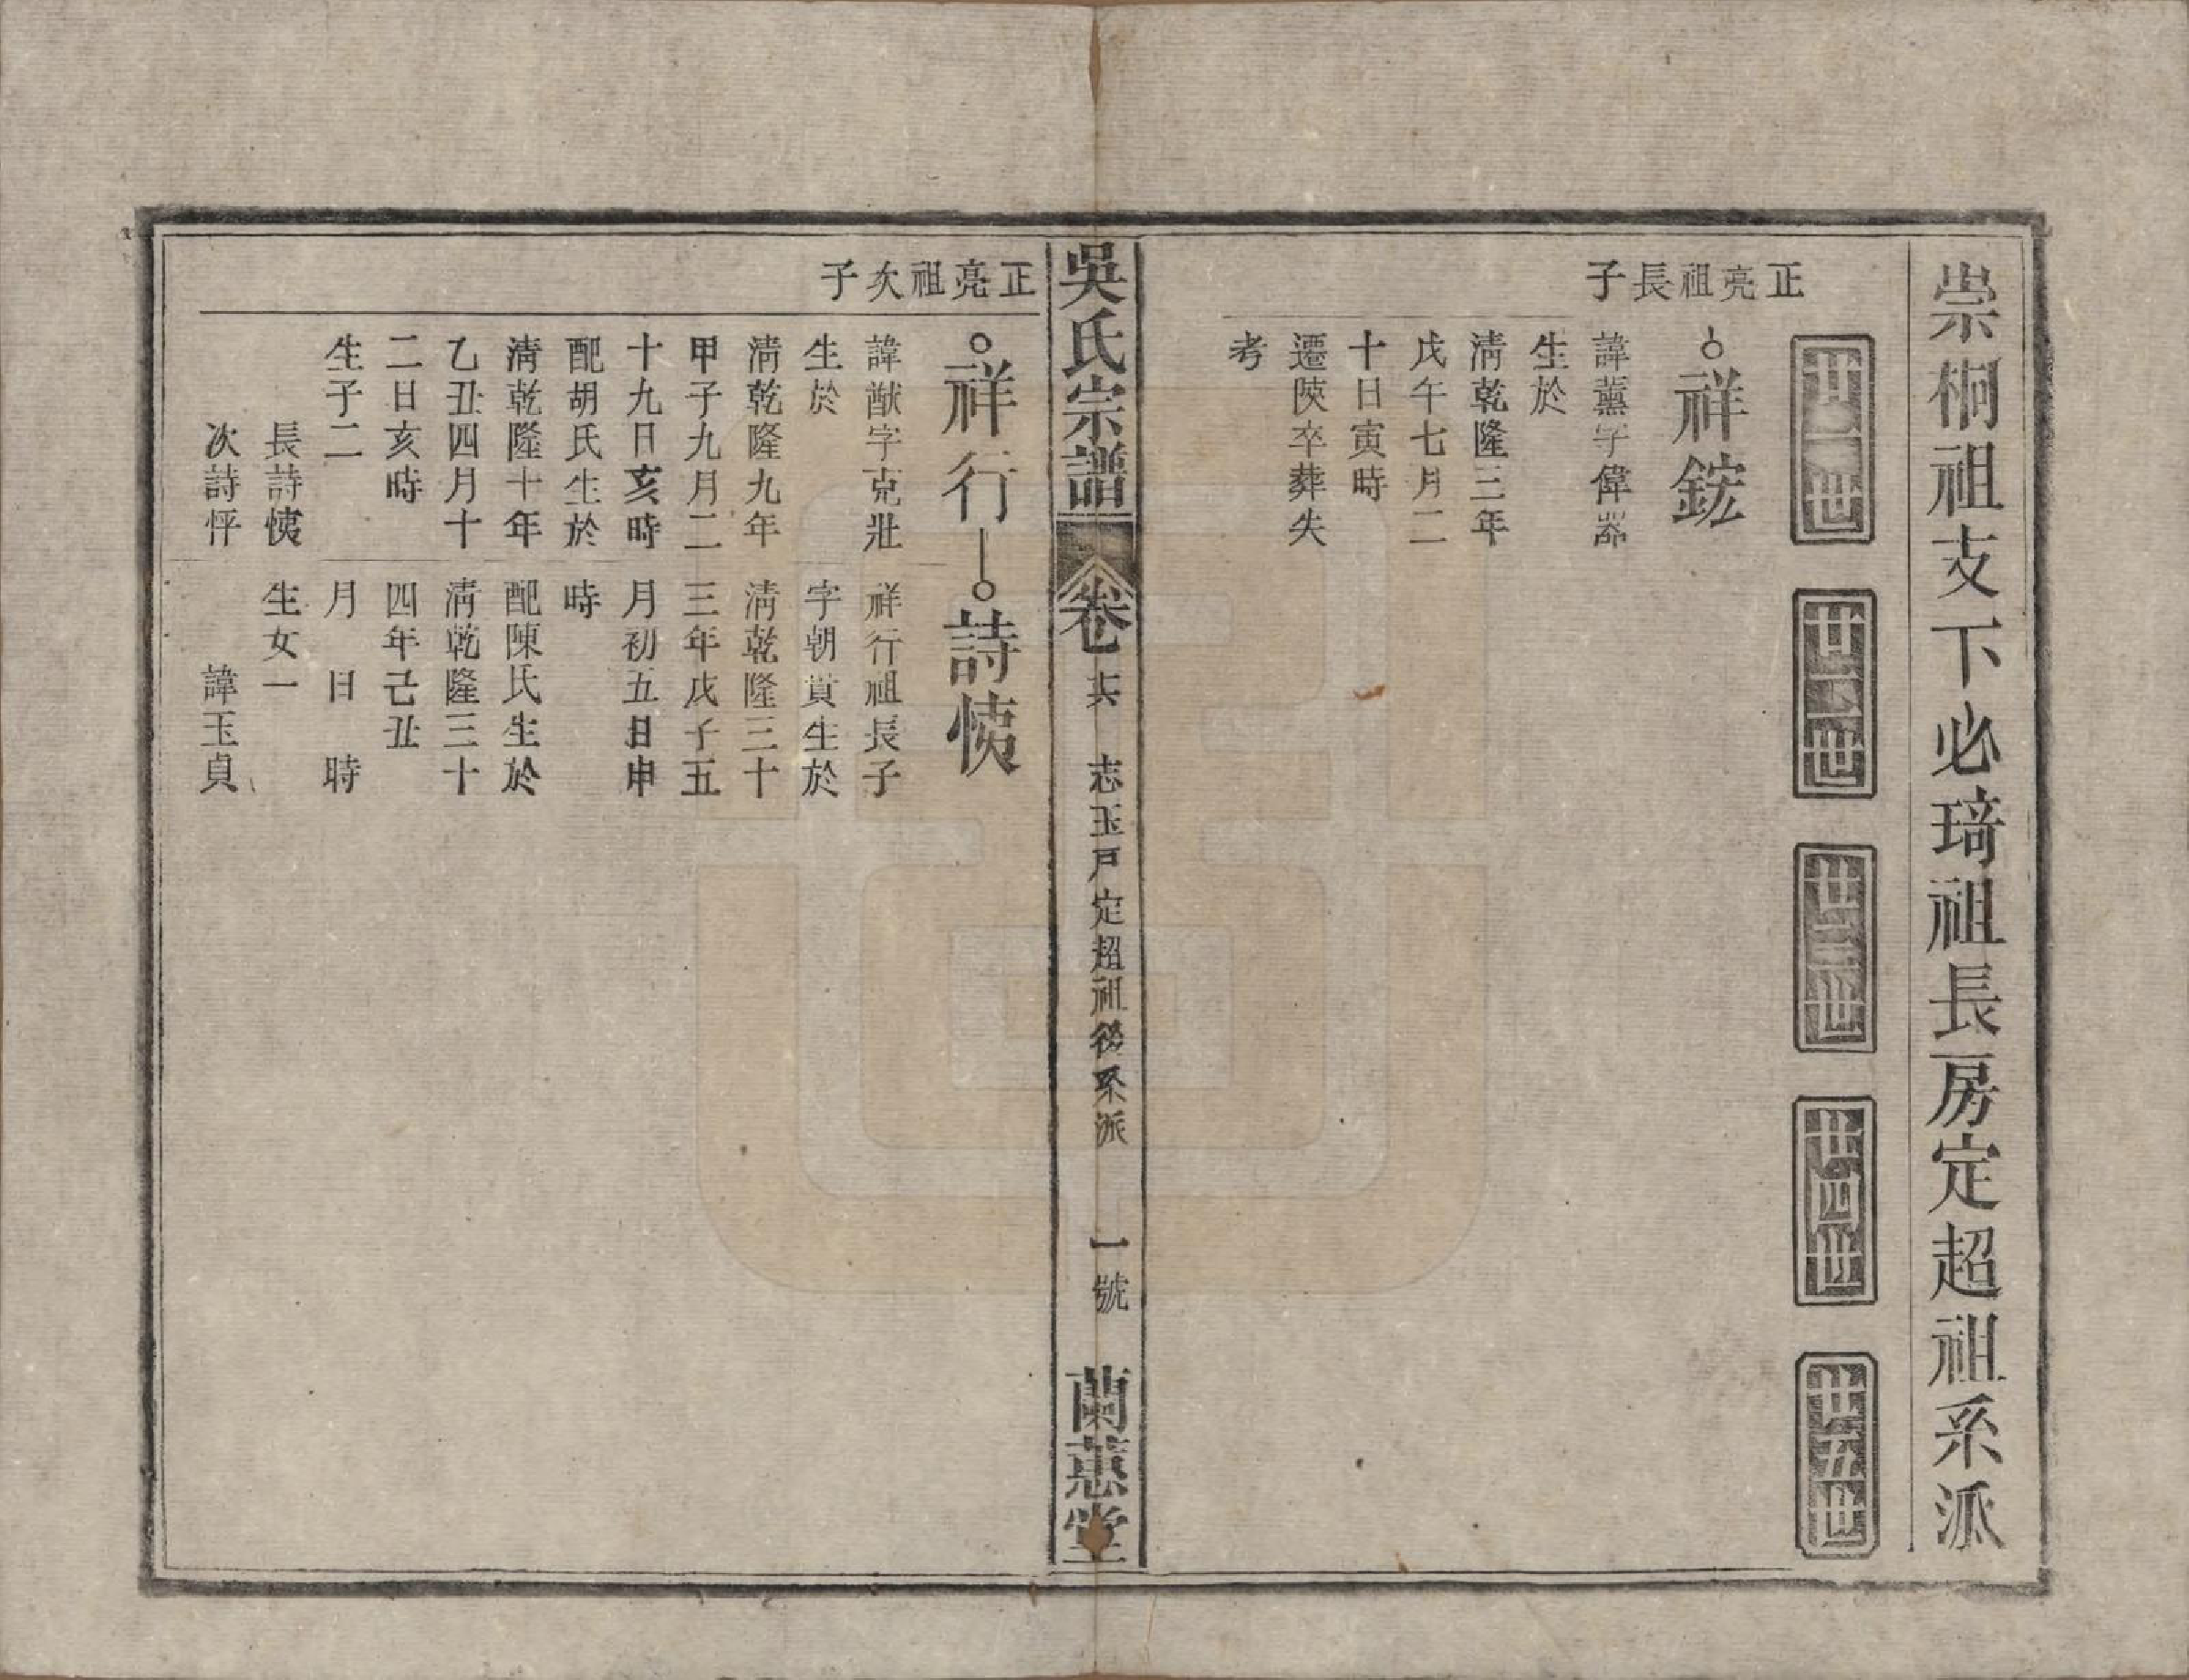 崇桐祖支下必琦祖長房定超祖系派
廿一世
廿二世
廿三世
廿四世
廿五世
正亮祖長子
祥鋐
諱薫字偉器
生於
清乾隆三年
戊午七月二
十日寅時
遷陝卒葬失
考
吳氏宗譜
卷
十六
志玉戸定超祖後系派
一號
蘭蕙堂
正亮祖次子
祥行
諱猷字克壯
生於
清乾隆九年
甲子九月二
十九日亥時
配胡氏生於
清乾隆十年
乙丑四月十
二日亥時
生子二
長詩愱
次詩怦
詩愱
祥行祖長子
字朝貢生於
清乾隆三十
三年戊子五
月初五日申
時
配陳氏生於
清乾隆三十
四年己丑
月 日 時
生女一
諱玉貞